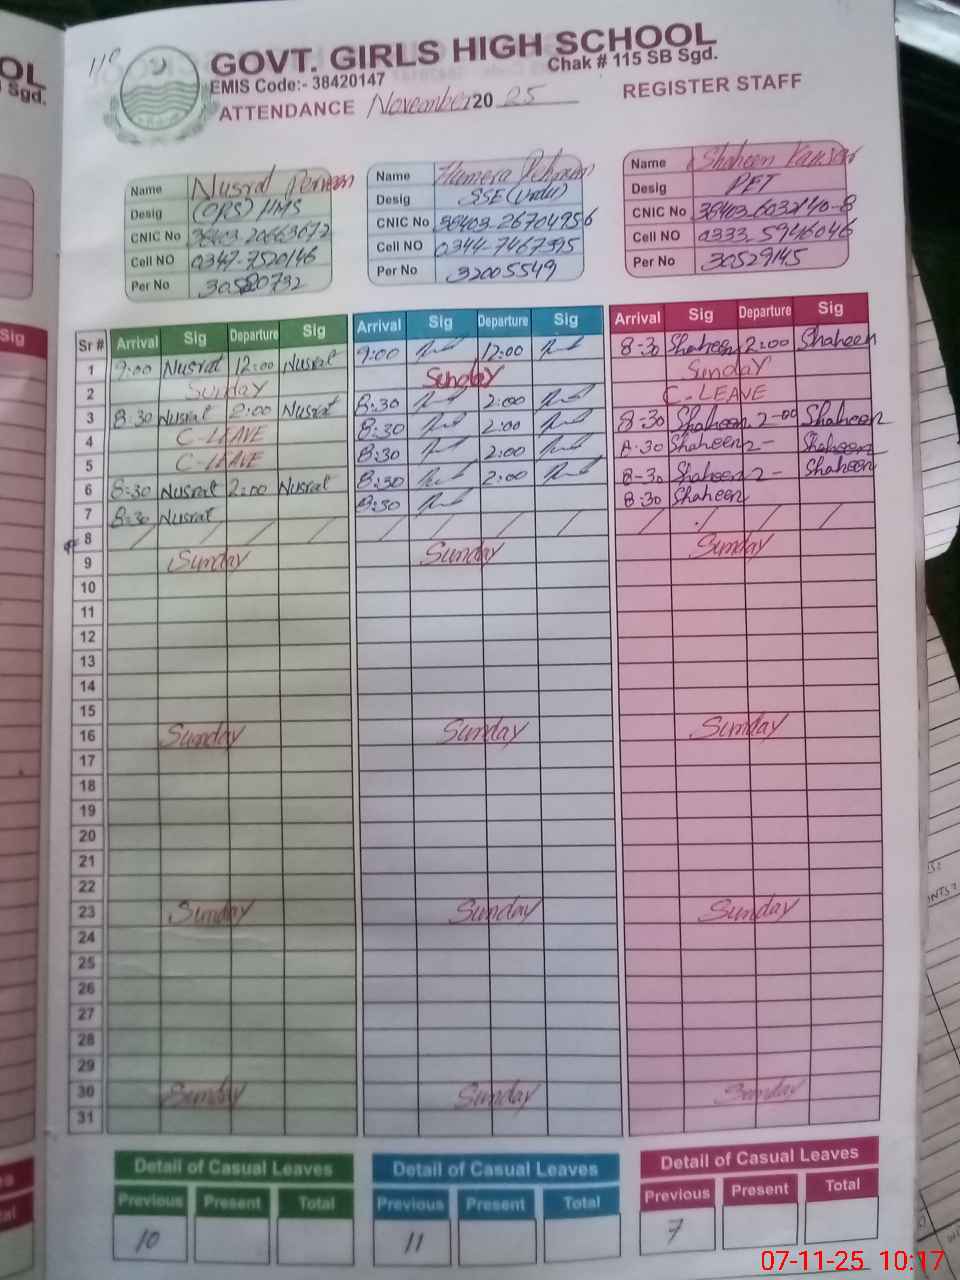 118
GOVT. GIRLS HIGH SCHOOL
EMIS Code:- 38420147 Chak # 115 SB Sgd.
ATTENDANCE November 20 25 REGISTER STAFF
Name Nusrat Perveen
Desig (OPS) HMS
CNIC No
Cell NO 0347-7520146
Per No
Name Humera Rehman
Desig SSE (Urdu)
CNIC No 38403-26704956
Cell NO 0344-7467395
Per No 32005549
Name Shaheen Kausar
Desig PET
CNIC No 38403-6032140-8
Cell NO 0333-5946046
Per No 30529145
Sr # Arrival Sig Departure Sig Arrival Sig Departure Sig Arrival Sig Departure Sig
1 9:00 Nusrat 12:00 Nusrat 9:00 12:00 8-30 Shaheen 2:00 Shaheen
2 Sunday Sunday Sunday
3 8:30 Nusrat 2:00 Nusrat 8:30 2:00 C-LEAVE
4 C-LEAVE 8:30 2:00 8-30 Shaheen 2-00 Shaheen
5 C-LEAVE 8:30 2:00 8-30 Shaheen 2- Shaheen
6 8:30 Nusrat 2:00 Nusrat 8:30 2:00 8-30 Shaheen 2- Shaheen
7 8:30 Nusrat 8:30 8:30 Shaheen
8
9 Sunday Sunday Sunday
10
11
12
13
14
15
16 Sunday Sunday Sunday
17
18
19
20
21
22
23 Sunday Sunday Sunday
24
25
26
27
28
29
30 Sunday Sunday Sunday
31
Detail of Casual Leaves Detail of Casual Leaves Detail of Casual Leaves
Previous Present Total Previous Present Total Previous Present Total
10 11 7
07-11-25 10:17